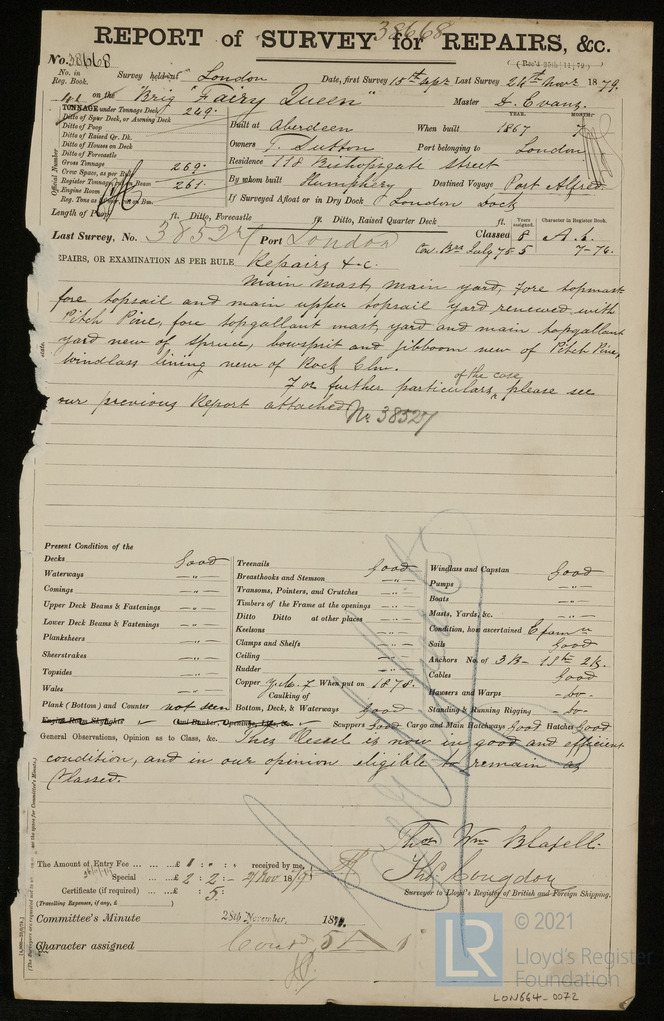 38668
REPORT of SURVEY for REPAIRS, &c.
No. 38668
(Rec'd 25th 11/79)
No. in Reg. Book. Survey held at London Date, first Survey 15th Last Survey 24th Novr 1879.
on the "Brig "Fairy Queen" Master D. Evans.
TONNAGE under Tonnage Deck 249.
Ditto of Spar Deck, or Awning Deck
Ditto of Poop
Ditto of Raised Qr. Dk.
Ditto of Houses on Deck
Ditto of Forecastle
Gross Tonnage 269.
Crew Space, as per Rule
Register Tonnage, as on Beam 261.
Engine Room
Reg. Tons as on Bm.
Official Number
YEAR. MONTH.
Built at Aberdeen When built 1867 7
Owners Dutton Port belonging to London
Residence 118 Bishopsgate Street
By whom built Humphery Destined Voyage Port Alfred
If Surveyed Afloat or in Dry Dock London Dock
Length of Poop ft. Ditto, Forecastle ft. Ditto, Raised Quarter Deck ft.
Years assigned. Character in Register Book.
Last Survey, No. 38527 Port London Classed 8 A.1.
July 75 5 7-76.
REPAIRS, OR EXAMINATION AS PER RULE Repairs &c.
Main mast, main yard, Fore topmast
fore topsail and main upper topsail yard renewed with
Pitch Pine, fore topgallant mast, yard and main topgallant
yard new of Spruce, bowsprit and jibboom new of Pitch Pine,
windlass lining new of Rock Elm.
For further particulars of the case, please see
our previous Report attached No 38527
Present Condition of the
Decks Good
Waterways —"—
Comings —"—
Upper Deck Beams & Fastenings —"—
Lower Deck Beams & Fastenings —"—
Planksheers —"—
Sheerstrakes —"—
Topsides —"—
Wales —"—
Plank (Bottoms) and Counter not seen
Treenails Good
Breasthooks and Stemson —"—
Transoms, Pointers, and Crutches —"—
Timbers of the Frame at the openings —"—
Ditto Ditto at other places —"—
Keelsons —"—
Clamps and Shelfs —"—
Ceiling —"—
Rudder —"—
Copper Y.M. When put on 1878.
Caulking of
Bottom, Deck, & Waterways Good
Windlass and Capstan Good
Pumps —"—
Boats —"—
Masts, Yards, &c. —"—
Condition, how ascertained Examn
Sails Good
Anchors No. of 3B–1St 2K.
Cables Good
Hawsers and Warps – Do –
Standing & Running Rigging – Do –
Engine Room Skylights Coal Bunker, Openings, Lids, &c. Scuppers Good Cargo and Main Hatchways Good Hatches Good
General Observations, Opinion as to Class, &c. This Vessel is now in good and efficient
condition, and in our opinion eligible to remain as
Classed.
Thos Wm Blabell.
The Amount of Entry Fee ... ... ... £ 1 : " : received by me,
Special ... ... £ 2 : 2 : – Nov 1879
Certificate (if required) ... £ : 5 :
(Travelling Expenses, if any, £ )
Thos. Congdon
Surveyor to Lloyd's Register of British and Foreign Shipping.
Committee's Minute 28th November, 187
Character assigned Contd 5 A 1
© 2021
LR
Lloyd's Register
Foundation
LON664-0072